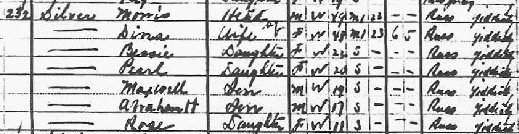 232 Silver Morris Head M W 49 M1 23 - - Russ Yiddish
— Wife F W 48 M1 23 6 5 Russ Yiddish
— Bessie Daughter F W 22 S - - Russ Yiddish
— Pearl Daughter F W 20 S - - Russ Yiddish
— Maxwell Son M W 19 S - - Russ Yiddish
— Abraham H Son M W S - - Russ Yiddish
— Rose Daughter F W 11 S - - Russ Yiddish